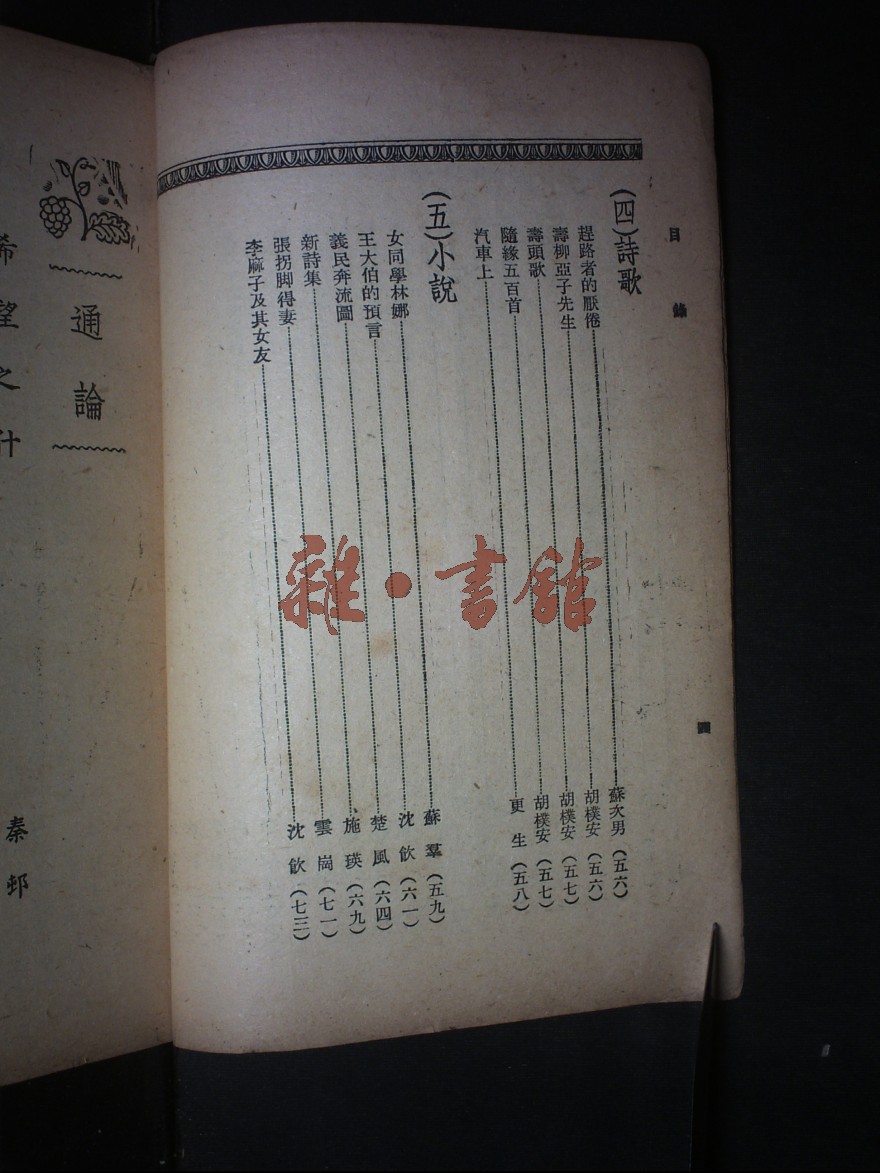 目錄
四
(四)詩歌
趕路者的厭倦……蘇次男(五六)
壽柳亞子先生……胡樸安(五六)
壽頭歌……胡樸安(五七)
隨緣五百首……胡樸安(五七)
汽車上……更生(五八)
(五)小說
女同學林娜……蘇羣(五九)
王大伯的預言……沈歆(六一)
義民奔流圖……楚風(六四)
新詩集……施瑛(六九)
張拐脚得妻……雲崗(七一)
李麻子及其女友……沈歆(七三)
通論
希望之什
秦邨
雜·書館